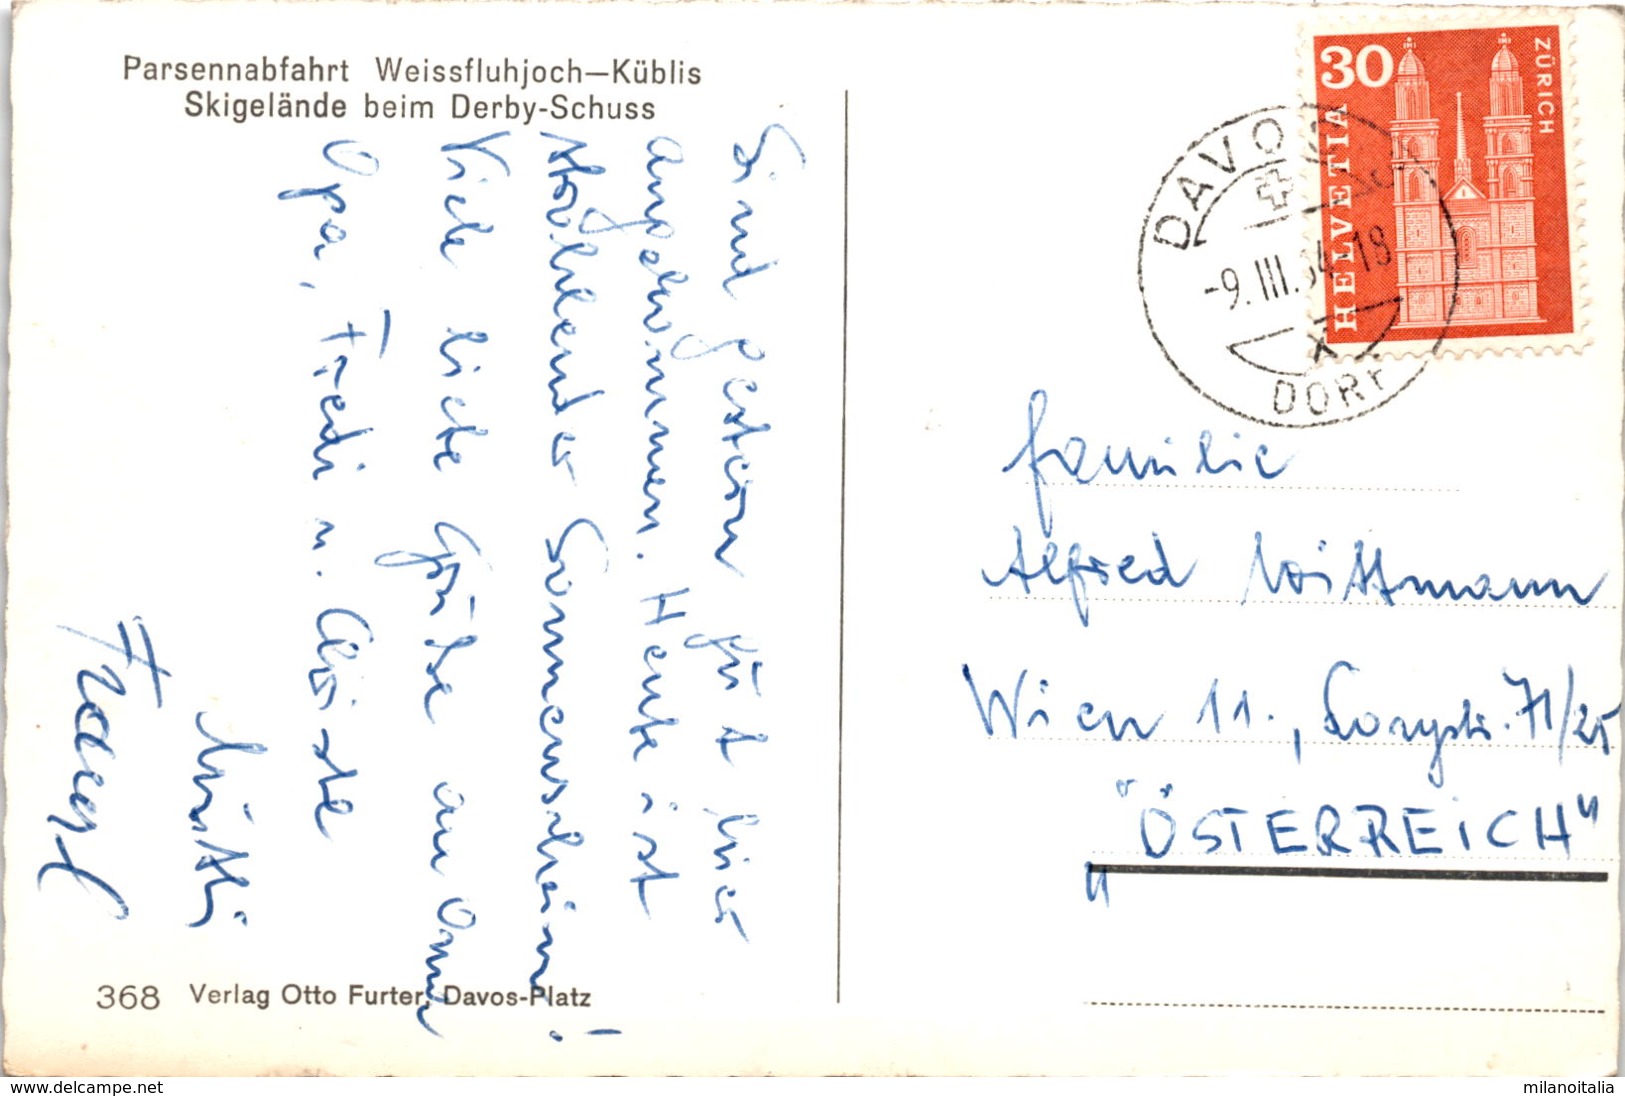 Parsennabfahrt Weissfluhjoch—Küblis
Skigelände beim Derby-Schuss
Sind gestern gut hier
angekommen. Heute ist
strahlender Sonnenschein!
Viele liebe Grüße an Oma
Opa, Fredi u. Christe
368 Verlag Otto Furter, Davos-Platz
30
ZÜRICH
HELVETIA
DAVOS
-9.III.64-18
DORF
Familie
Alfred Wittmann
Wien 11., Lorystr. 71/25
"ÖSTERREICH"
www.delcampe.net
milanoitalia